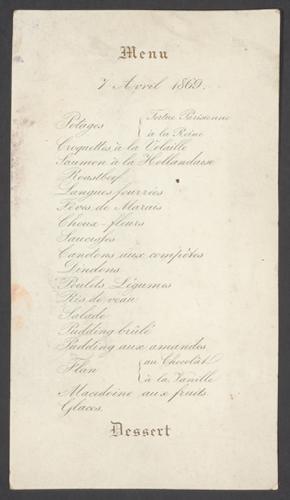 Menu
7 Avril 1869.
Potages { Tortue Parisienne
à la Reine
Croquettes à la Volaille
Saumon à la Hollandaise
Roastbeef
Langues fourrées
Fèves de Marais
Choux-fleurs
Saucisses
Candons aux compôtes
Dindons
Poulets Légumes
Ris de veau
Salade
Pudding brûlé
Pudding aux amandes
Flan { au Chocolat
à la Vanille
Macédoine aux fruits.
Glaces.
Dessert